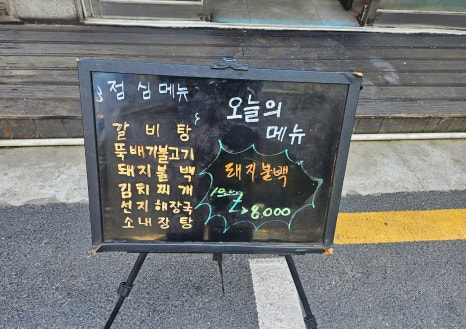 점심메뉴
갈비탕
뚝배기불고기
돼지불백
김치찌개
선지해장국
소내장탕
오늘의
메뉴
돼지불백
8,000